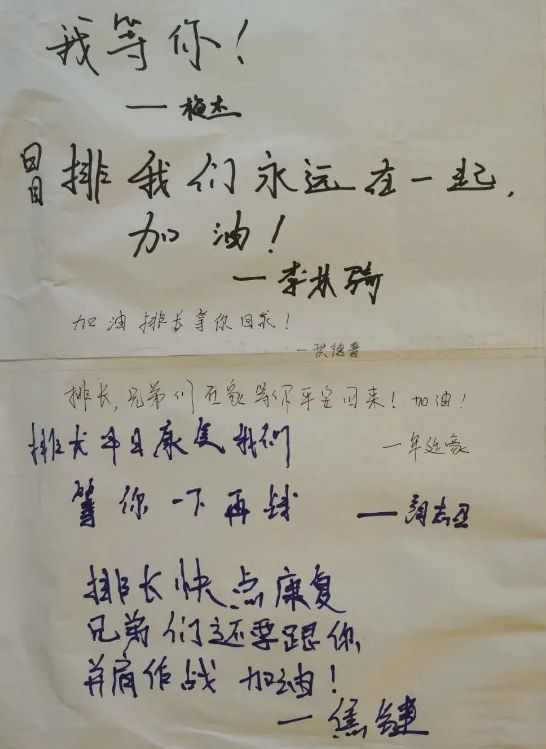 我等你!
一杨杰
冒排我们永远在一起,
加油!
一李林骑
加油排长等你回来!
排长,兄弟们在家等你平安回来!加油!
排长早日康复我们
等你一下再战
一年延豪
排长快点康复
兄弟们还要跟你
并肩作战 加油!
一焦键